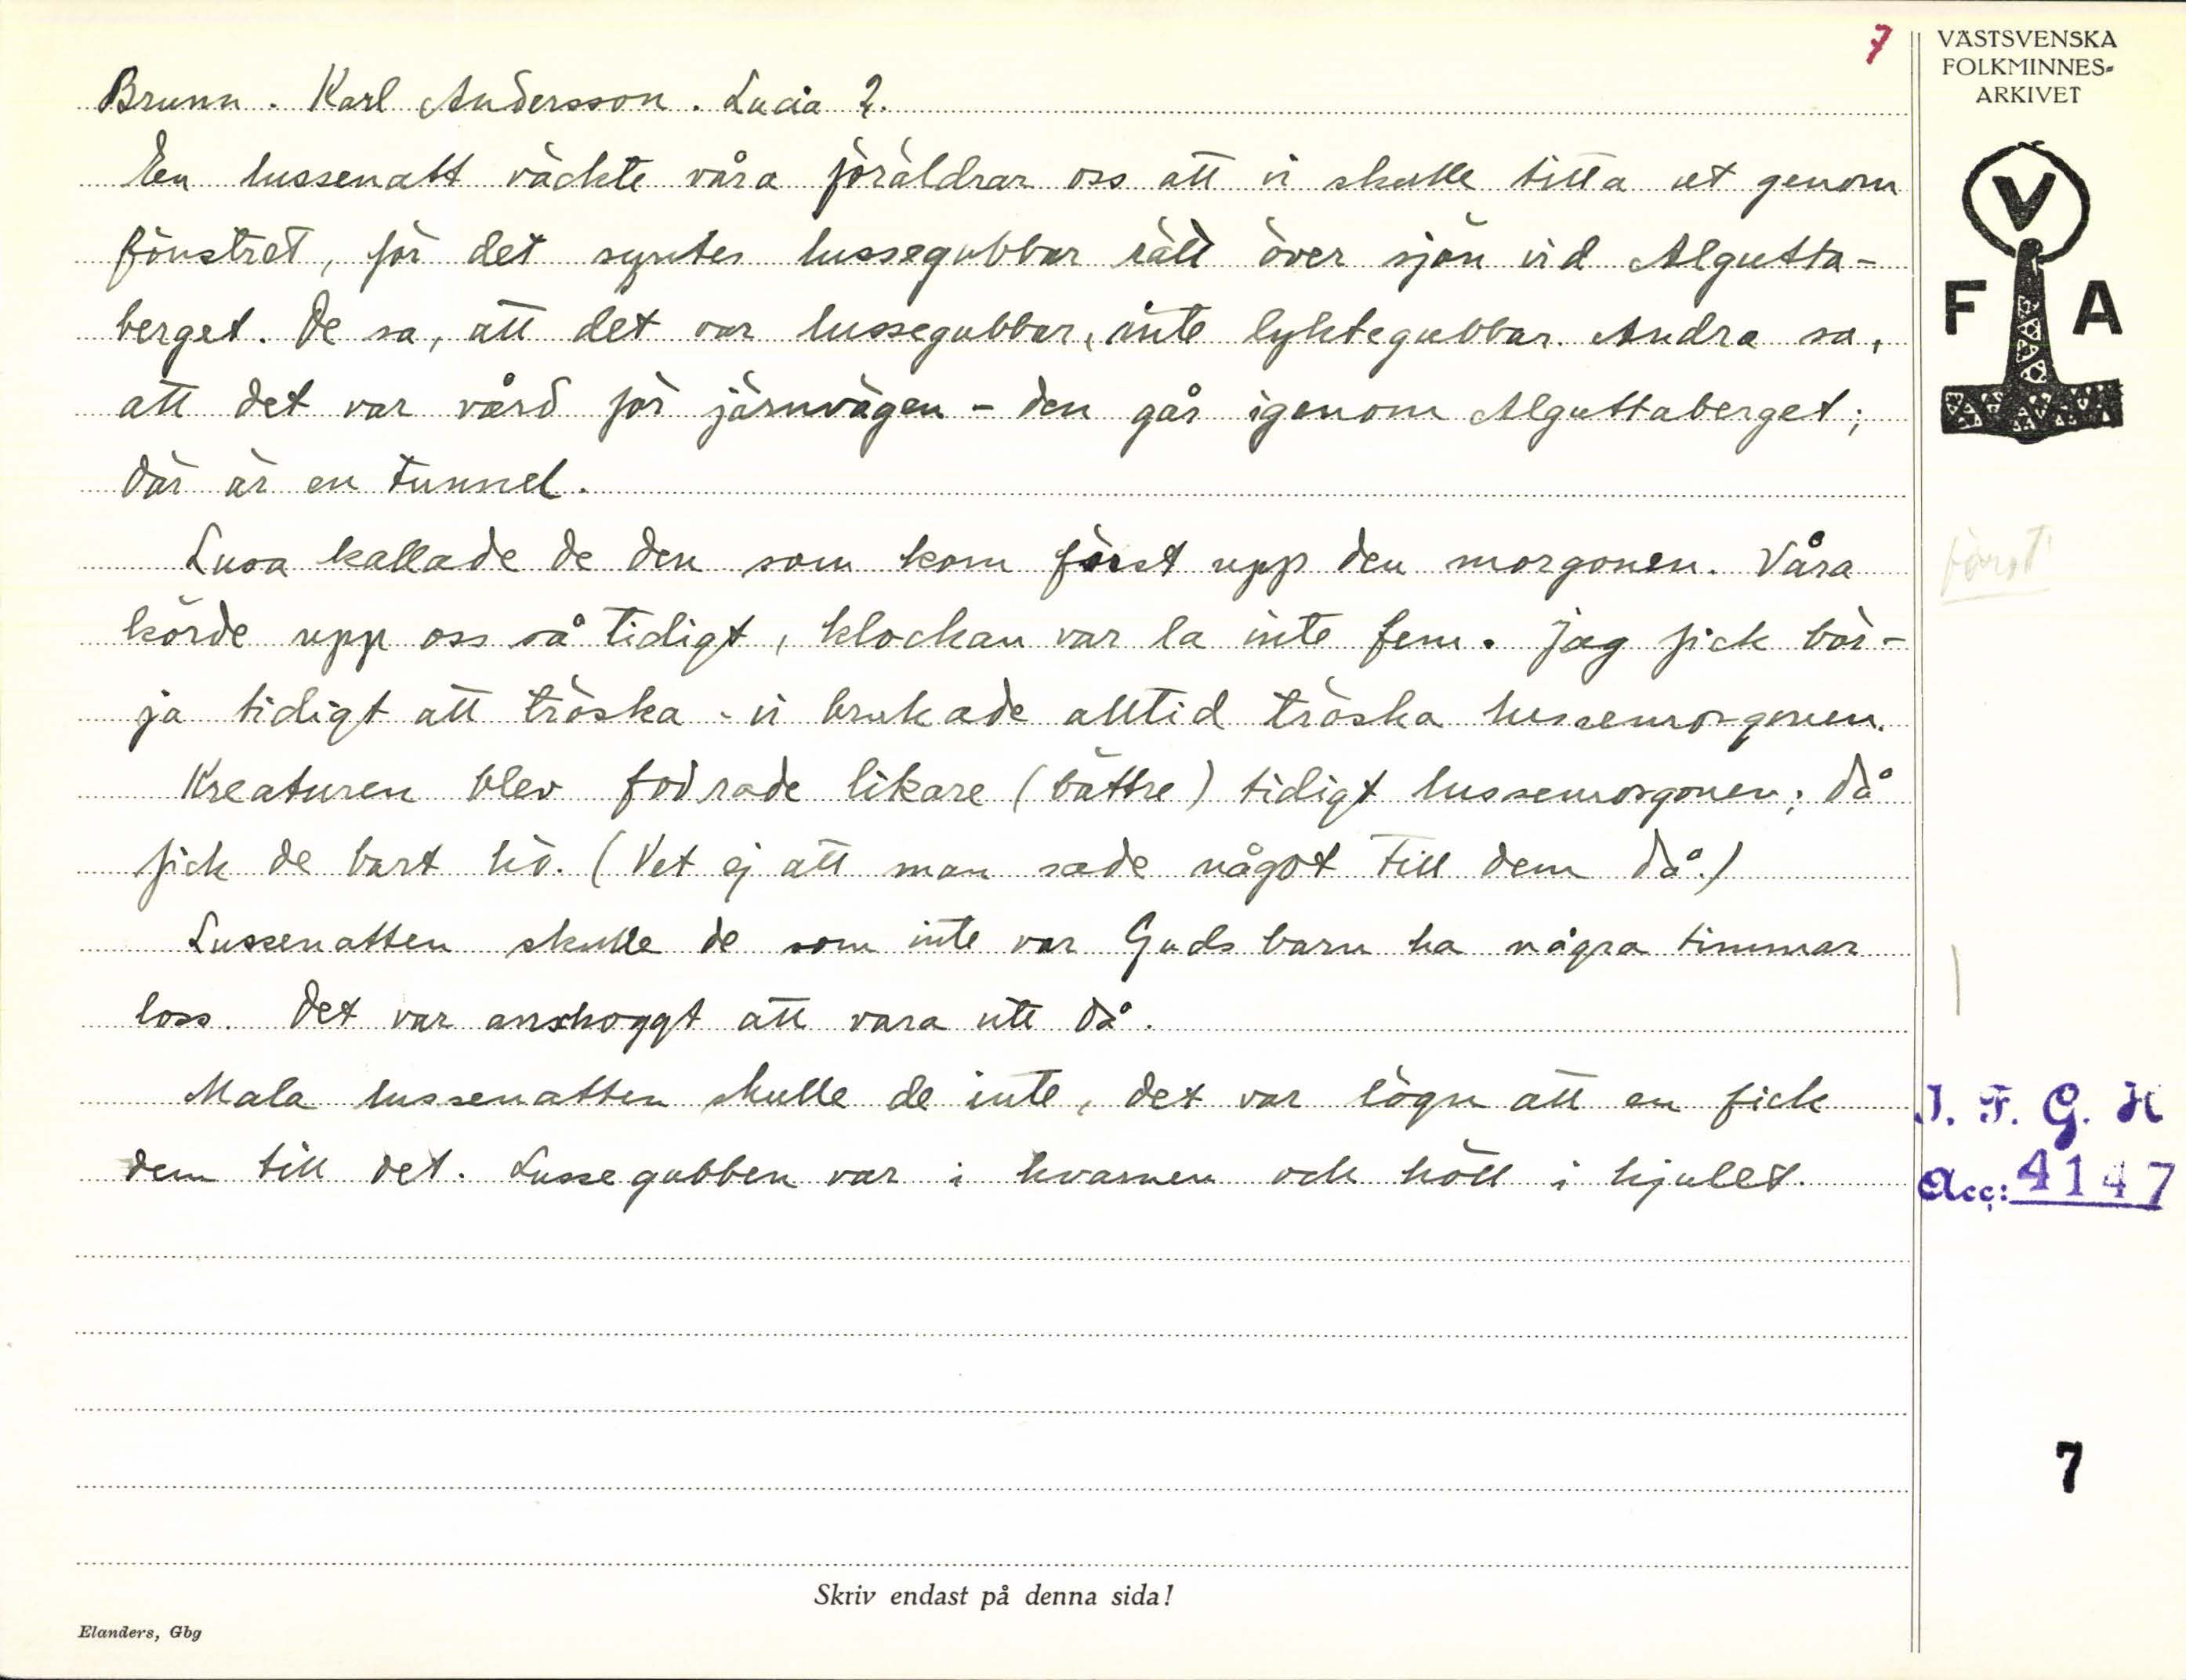 7
VÄSTSVENSKA
FOLKMINNES-
ARKIVET
V
F A
Brunn. Karl Andersson. Lucia 2.
En lussenatt väckte våra föräldrar oss att vi skulle titta ut genom
fönstret, för det syntes lussegubbar rätt över sjön vid Algutta-
berget. De sa, att det var lussegubbar, inte lyktegubbar. Andra sa,
att det var vård för järnvägen - den går igenom Alguttaberget;
där är en tunnel.
Lusa kallade de den som kom först upp den morgonen. Våra
först
körde upp oss så tidigt, klockan var la inte fem. Jag fick bör-
ja tidigt att tröska - vi brukade alltid tröska lussemorgonen.
Kreaturen blev fodrade likare (bättre) tidigt lussemorgonen; då
fick de bart hö. (Vet ej att man sade något till dem då.)
Lussenatten skulle de som inte var Guds barn ha några timmar
loss. Det var anskoggt att vara ute då.
Mala lussenatten skulle de inte, det var lögn att en fick
dem till det. Lussegubben var i kvarnen och höll i hjulet.
I. F. G. H
Acc: 4147
7
Skriv endast på denna sida!
Elanders, Gbg